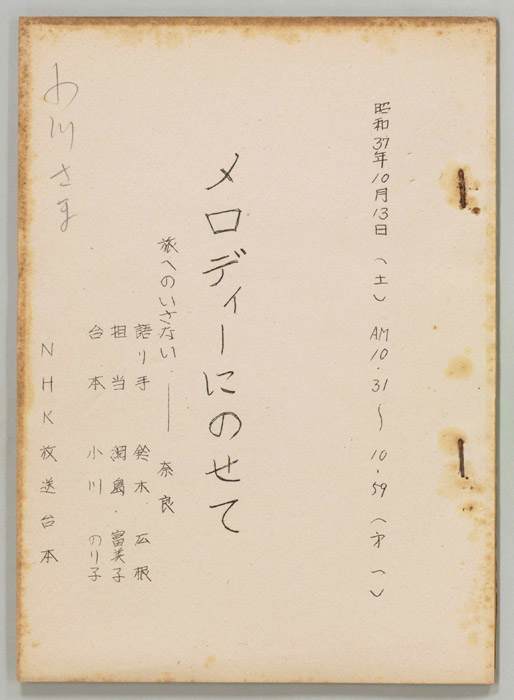 昭和37年10月13日(土) AM10.31〜10.59(才一)
メロディーにのせて
旅へのいざない ― 奈良
語り手 鈴木 広根
担当 渕島・富美子
台本 小川 のり子
NHK放送台本
小川さま